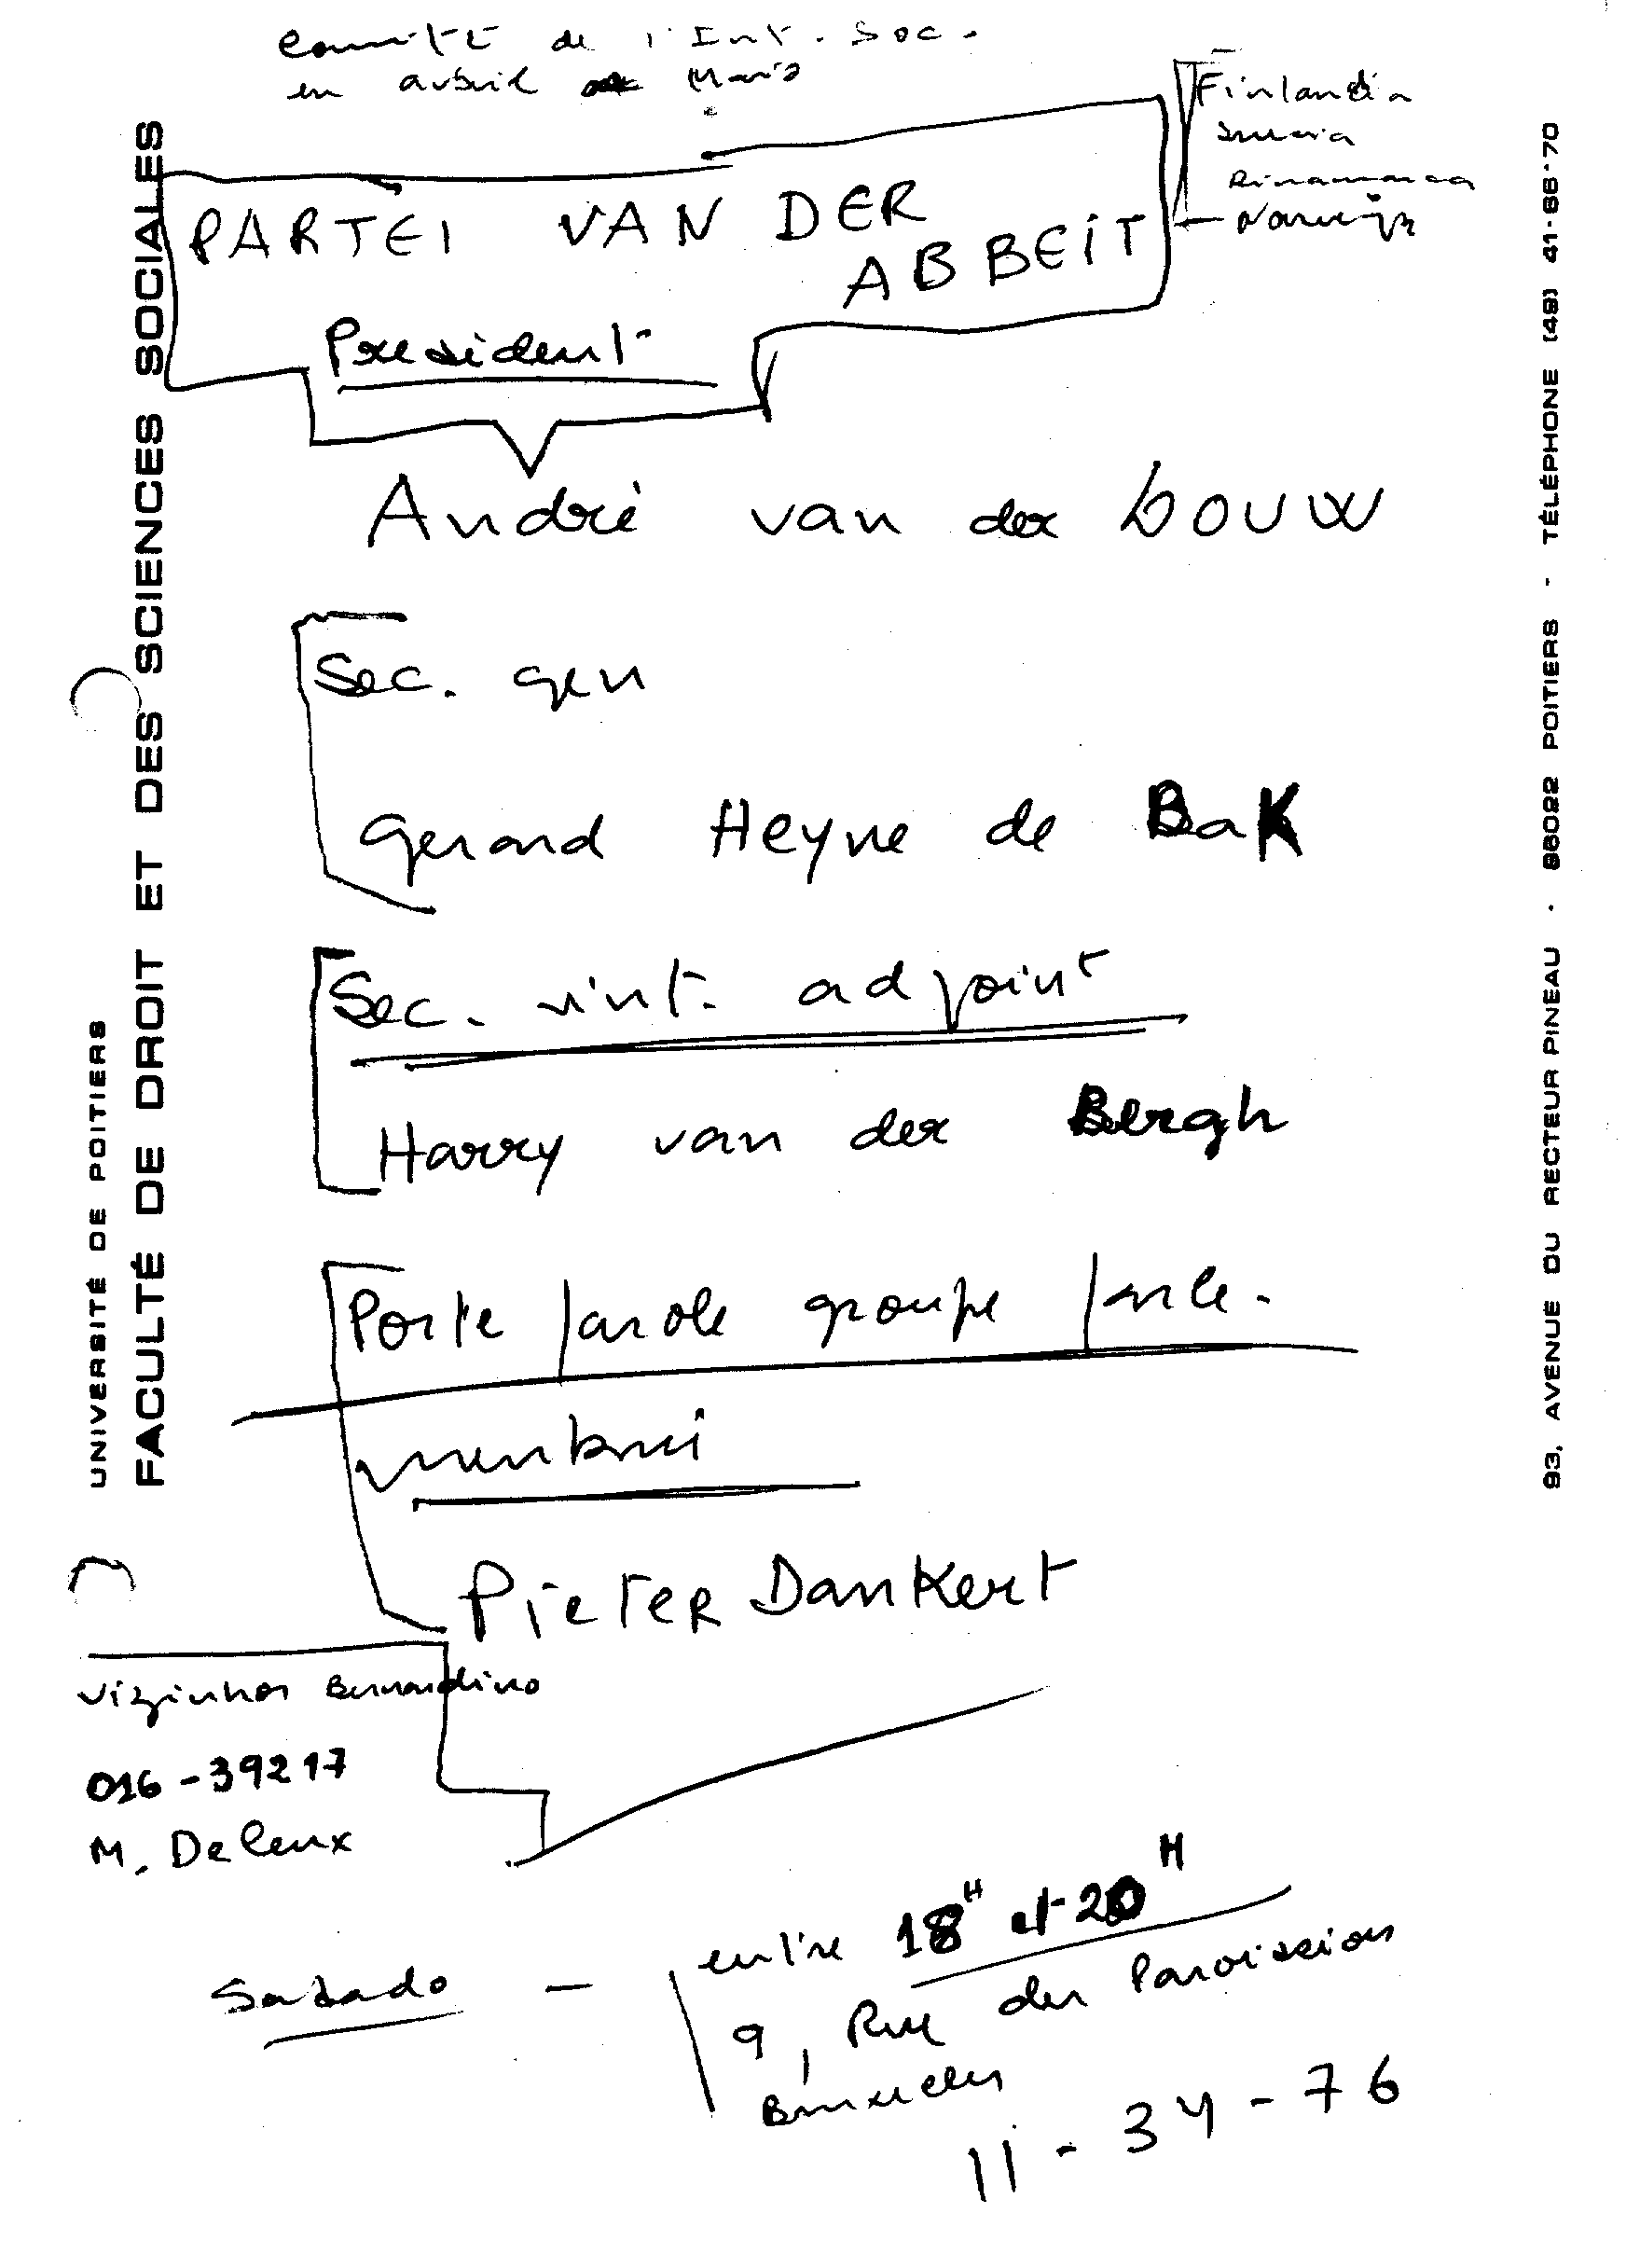 Comité de l'Int. Soc.
en avril Paris
Finlandia
Suecia
Dinamarca
Noruega
PARTEI VAN DER
ABBEIT
President
André van der LOUW
Sec. gen
Gerard Heyne de Bak
Sec. int. adjoint
Harry van der Bergh
Porte parole groupe parle-
mentaire
PIETER Dankert
Vizinhos Bernardino
016-39217
M. Deleux
Sabado - entre 18H et 20H
9, Rue des Paroissiens
Bruxelles
11-34-76
UNIVERSITÉ DE POITIERS
FACULTÉ DE DROIT ET DES SCIENCES SOCIALES
93, AVENUE DU RECTEUR PINEAU - 86022 POITIERS - TÉLÉPHONE (49) 41-66-70